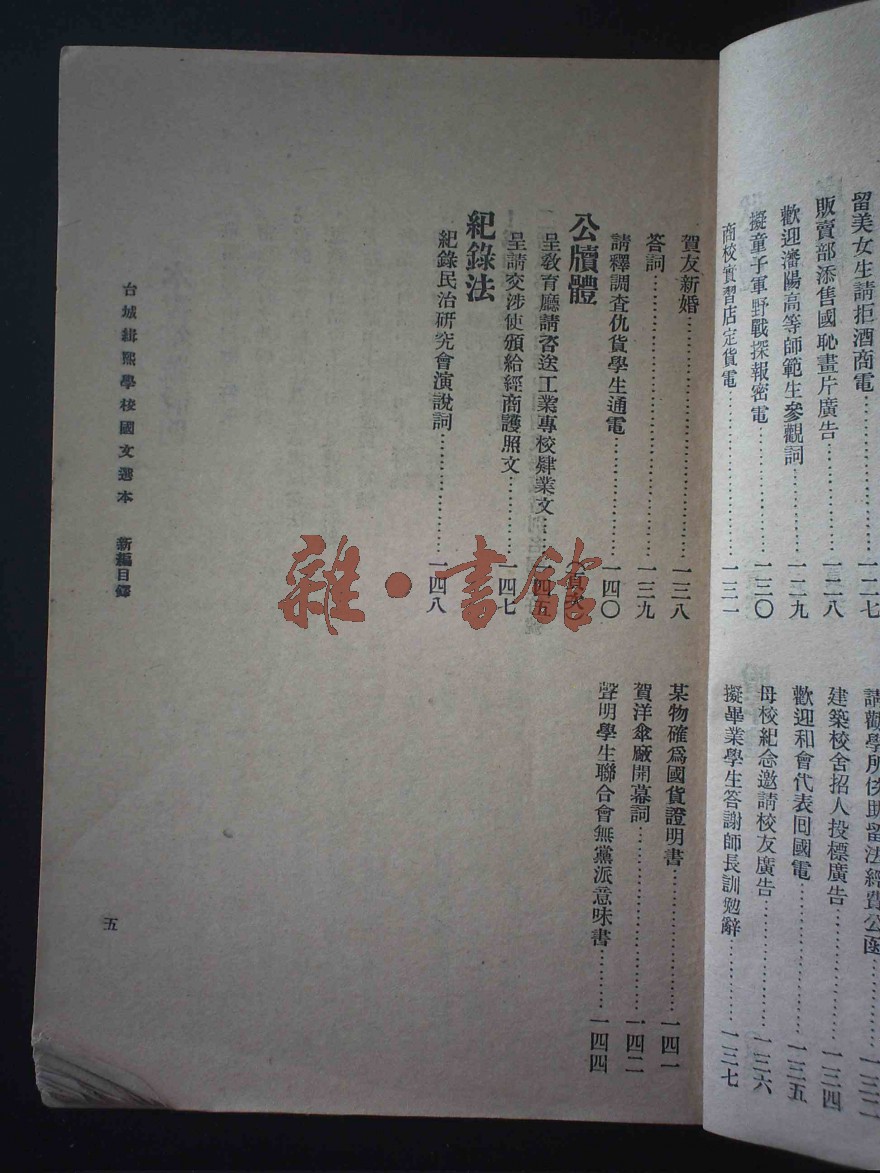 留美女生請拒酒商電……一二七
販賣部添售國恥畫片廣告……一二八
歡迎瀋陽高等師範生參觀詞……一二九
擬童子軍野戰探報密電……一三〇
商校實習店定貨電……一三一
請勸學所佽助留法經費公函……一三二
建築校舍招人投標廣告……一三四
歡迎和會代表回國電……一三五
母校紀念邀請校友廣告……一三六
擬畢業學生答謝師長訓勉辭……一三七
賀友新婚……一三八
答詞……一三九
請釋調查仇貨學生通電……一四〇
某物確爲國貨證明書……一四一
賀洋傘廠開幕詞……一四二
聲明學生聯合會無黨派意味書……一四四
公牘體
呈教育廳請咨送工業專校肄業文……一四五
呈請交涉使頒給經商護照文……一四七
紀錄法
紀錄民治研究會演說詞……一四八
台城緝熙學校國文選本 新編目錄
五
雜·書館